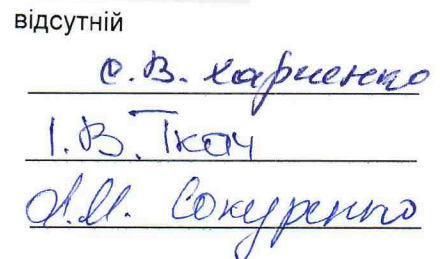 відсутній
О.В. Харченко
І.В. Ткач
Л.М. Сокуренко